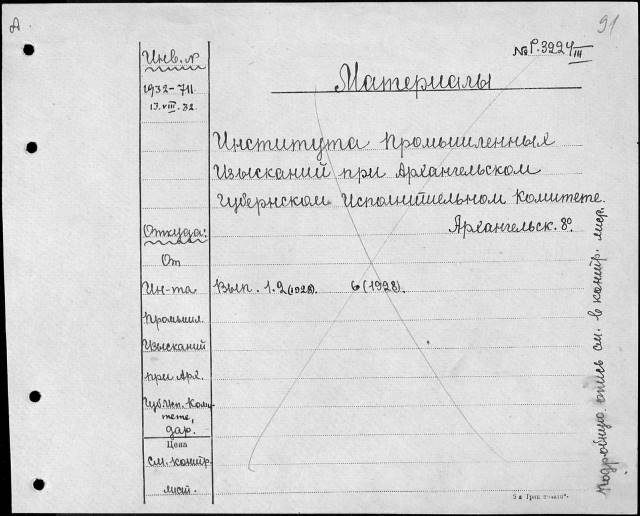 91
Инв. №
№ Р. 3224 III
Материалы
1932-711
13.VIII.32.
Института Промышленных
Изысканий при Архангельском
Губернском Исполнительном Комитете.
Архангельск. 8º.
Откуда:
От
Ин-та
Вып. 1.2 (1928). 6 (1928).
Промышл.
Изысканий
при Арх.
Губ. Исп. Коми-
тете,
дар.
Цена
См. контр.
лист.
Подробную опись см. в контр. листе.